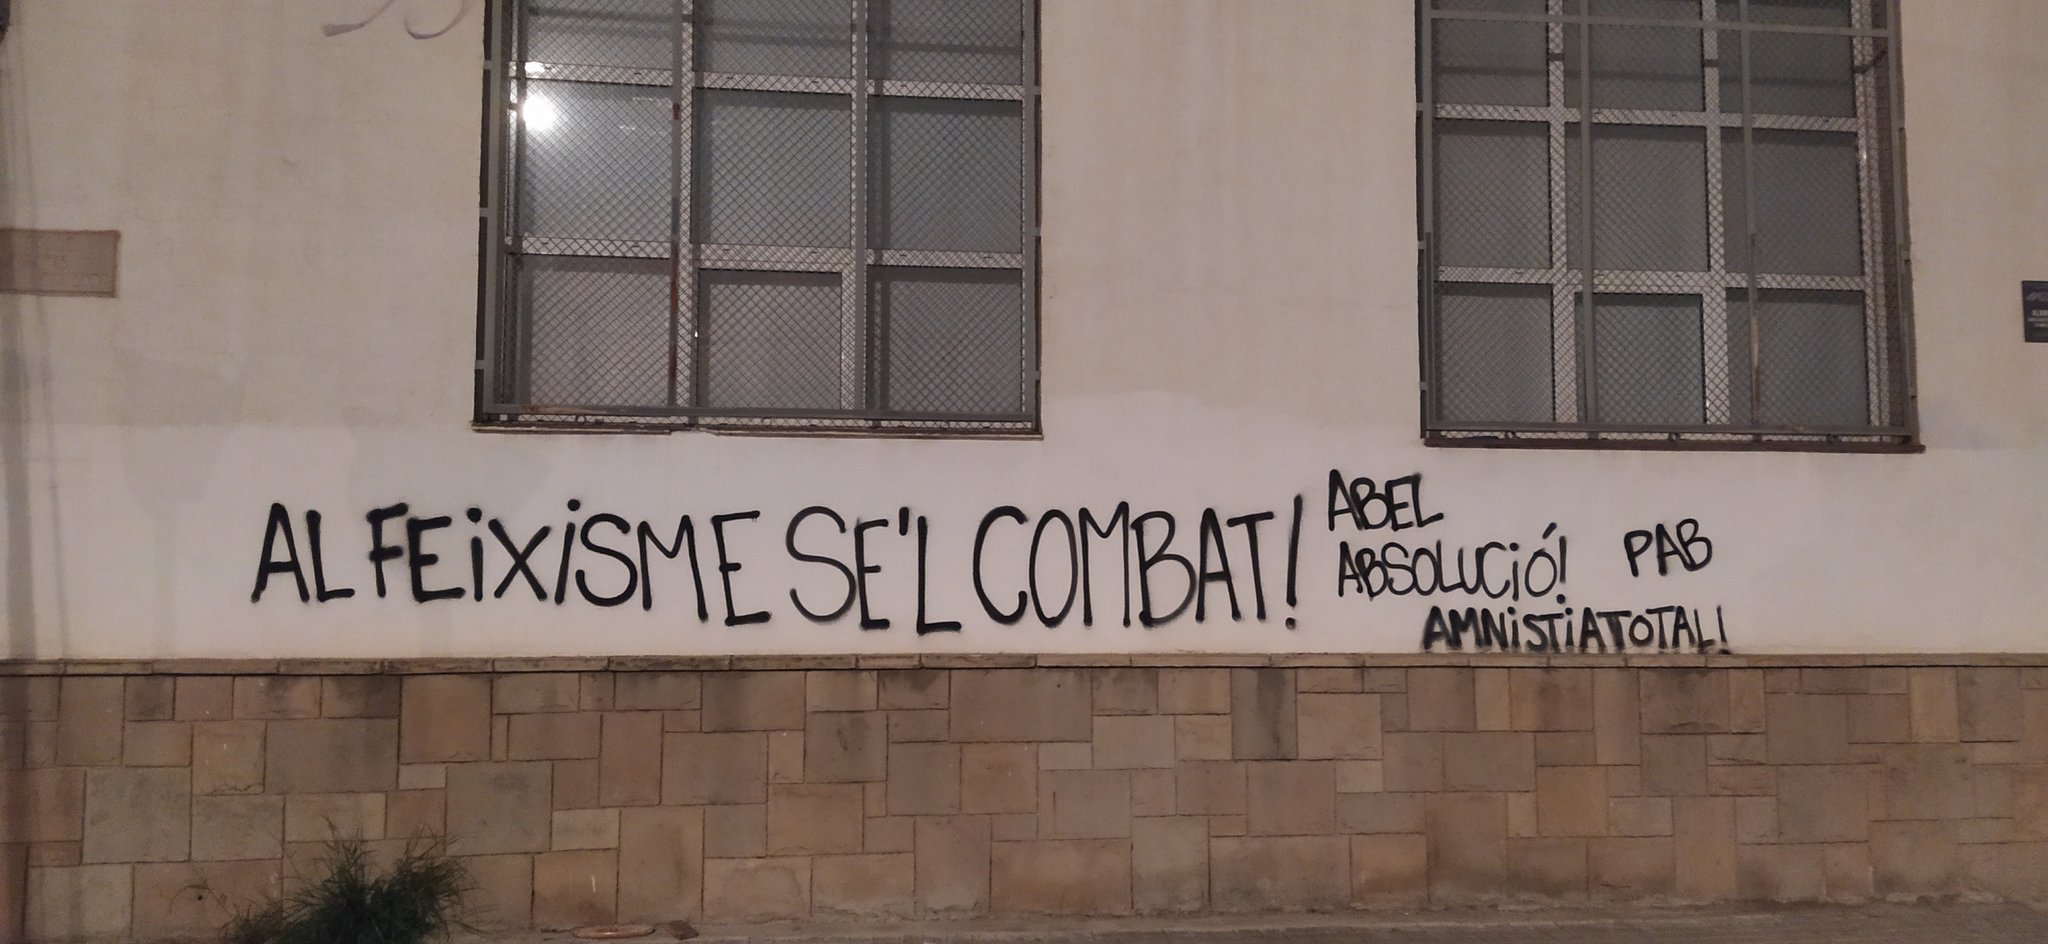 AL FEiXiSME SE'L COMBAT!
ABEL
ABSOLUCiÓ!
PAB
AMNiSTiA TOTAL!